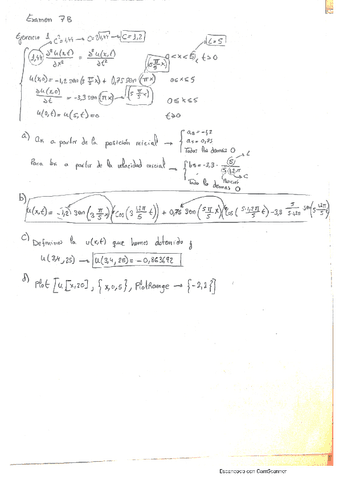 Examen 7B
Ejercicio 1 C²=1,44 → C=√1,44 → C=1,2 L=5
1,44 ∂²u(x,t)/∂x² = ∂²u(x,t)/∂t² 0<x<5, t>0
u(x,0)=-1,2 sen(3π/5 x)+0,75 sen(πx) 0≤x≤5
∂u(x,0)/∂t = -2,3 sen(πx) → 0≤x≤5
u(0,t)=u(5,t)=0 t>0
a) An a partir de la posición inicial → a₃=-1,2
a₅=0,75
Todos los demás 0
Para bn a partir de la velocidad inicial → b₅=-2,3·
Todos los demás 0
b)
u(x,t)=-1,2 sen(3π/5 x) cos(3·1,2π/5 t)+0,75 sen(5π/5 x) cos(5·1,2π/5 t)-2,3
c) Definimos la u(x,t) que hemos obtenido y
u(3,4, 25) → u(3,4, 25) = -0,363692
d) Plot[u[x,20], {x,0,5}, PlotRange → {-2,2}]
Escaneado con CamScanner